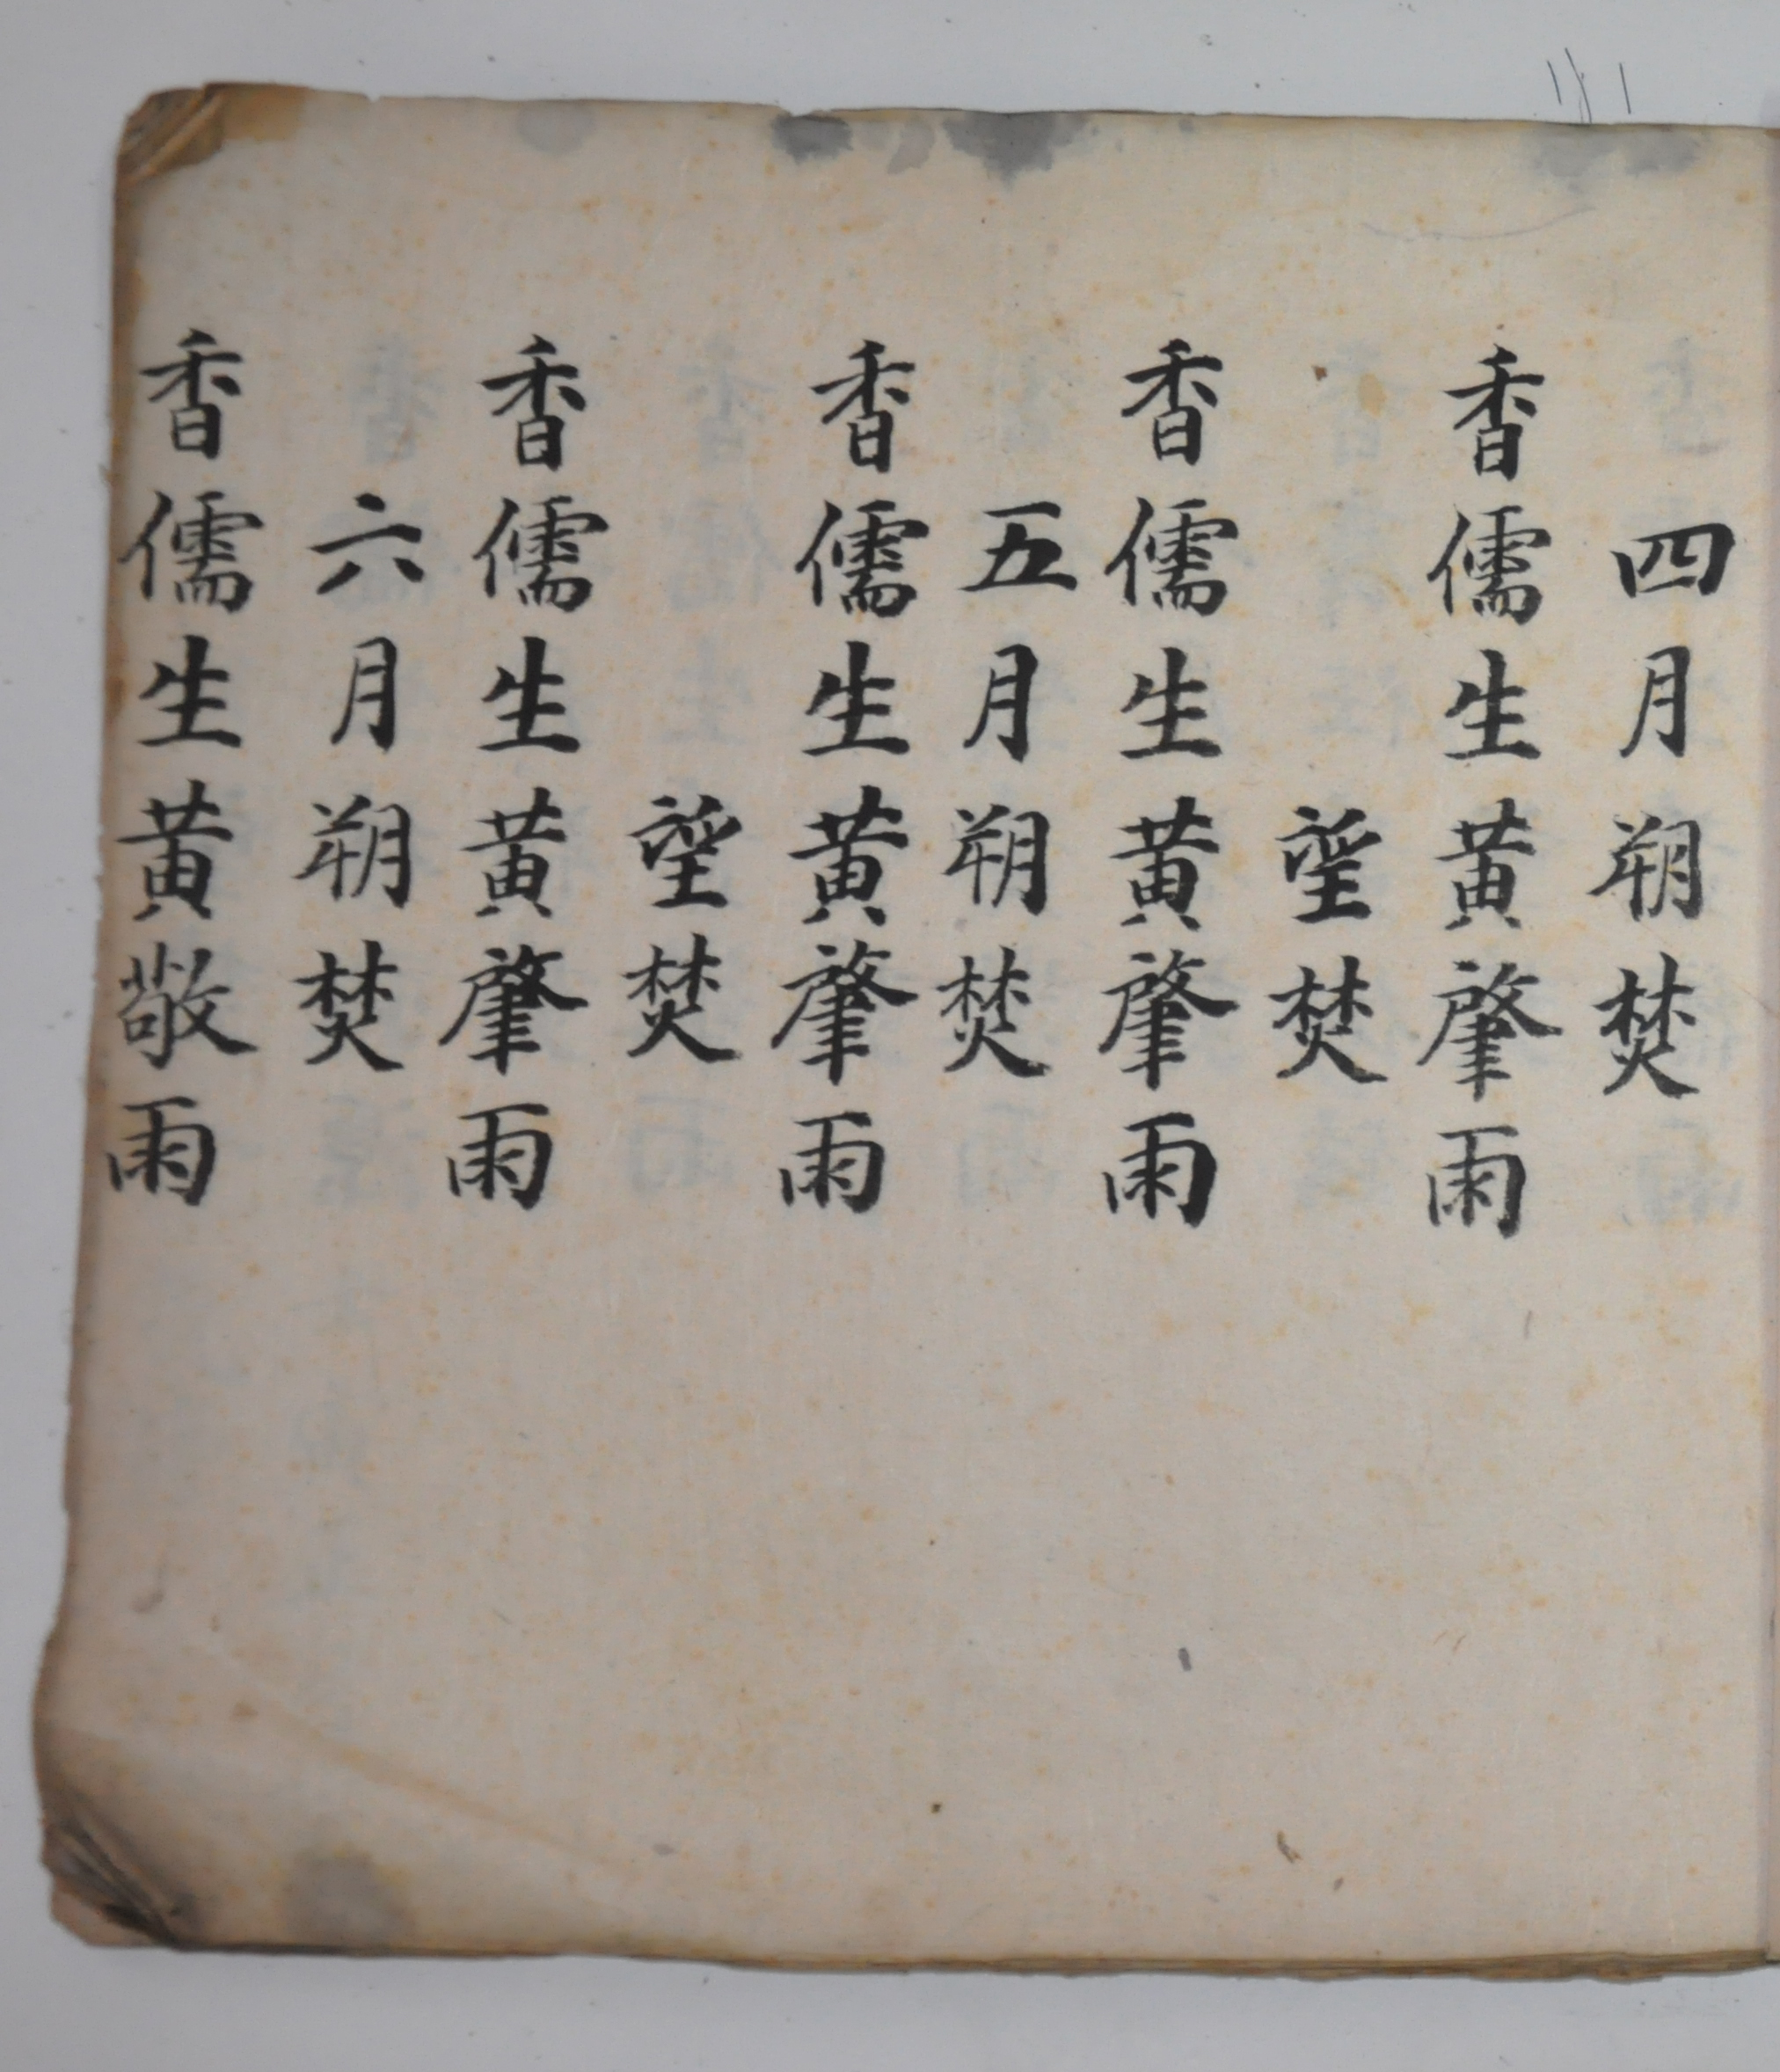 四月朔焚
香儒生黄肇雨
望焚
香儒生黄肇雨
五月朔焚
香儒生黄肇雨
望焚
香儒生黄肇雨
六月朔焚
香儒生黄敬雨